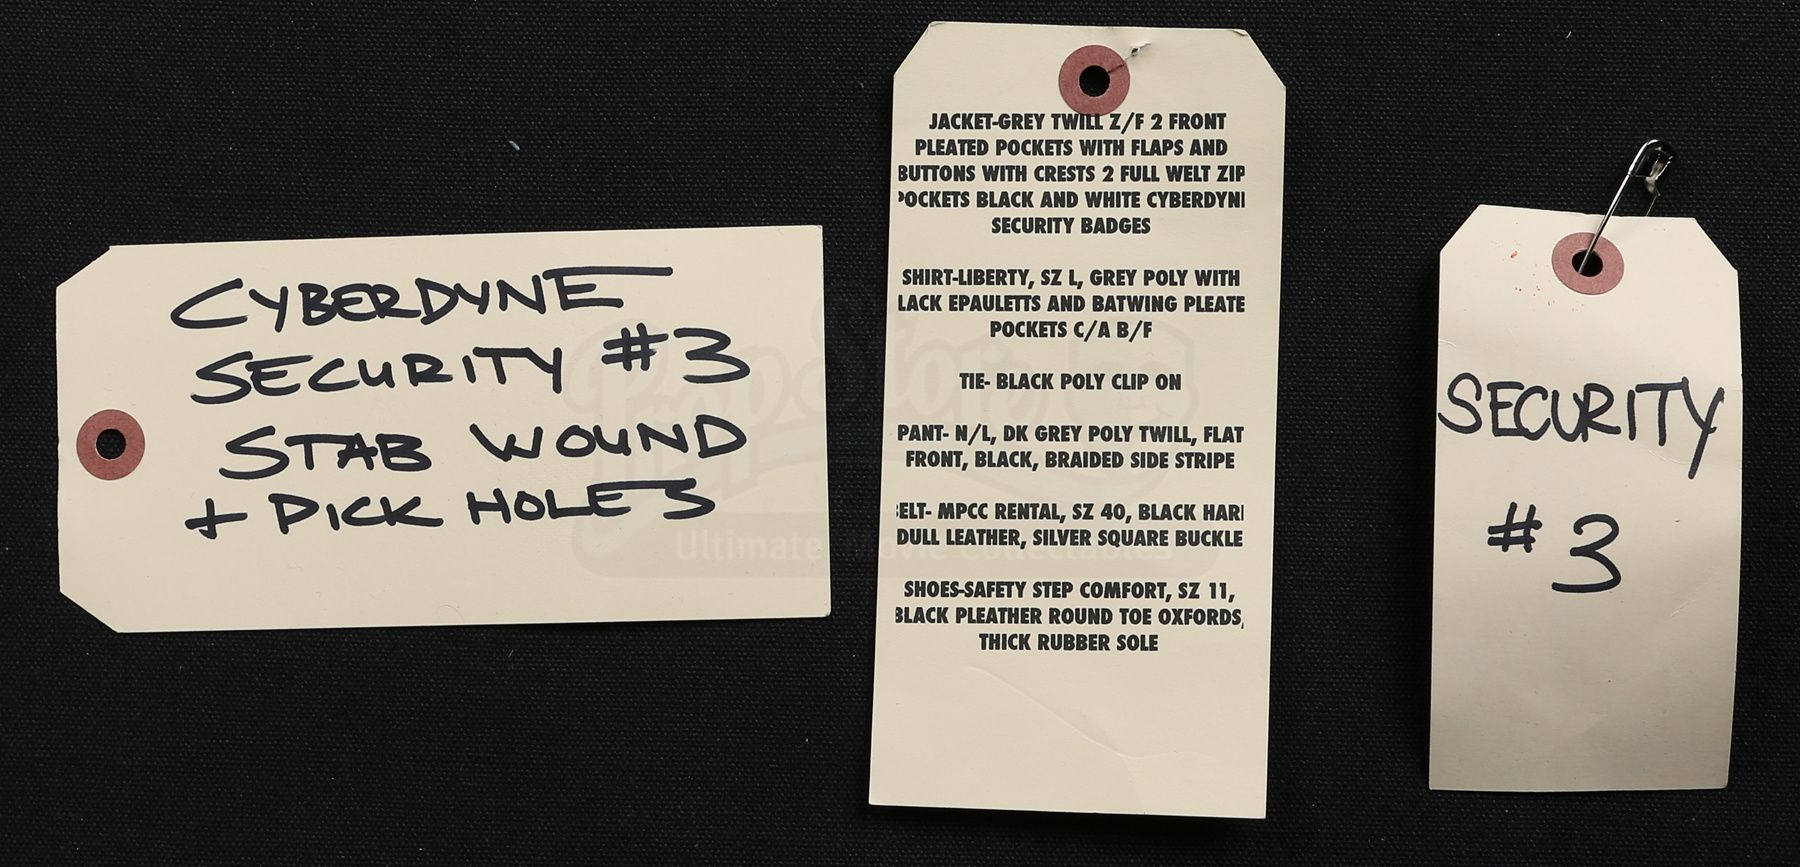 CYBERDYNE
SECURITY #3
STAB WOUND
+ DICK HOLES
JACKET-GREY TWILL Z/F 2 FRONT
PLEATED POCKETS WITH FLAPS AND
BUTTONS WITH CRESTS 2 FULL WELT ZIP
POCKETS BLACK AND WHITE CYBERDYNE
SECURITY BADGES
SHIRT-LIBERTY, SZ L, GREY POLY WITH
LACK EPAULETTS AND BATWING PLEATE
POCKETS C/A B/F
TIE- BLACK POLY CLIP ON
PANT- N/L, DK GREY POLY TWILL, FLAT
FRONT, BLACK, BRAIDED SIDE STRIPE
ELT- MPCC RENTAL, SZ 40, BLACK HARD
DULL LEATHER, SILVER SQUARE BUCKLE
SHOES-SAFETY STEP COMFORT, SZ 11,
BLACK PLEATHER ROUND TOE OXFORDS,
THICK RUBBER SOLE
SECURITY
#3
Prop Store
Ultimate Movie Collectables